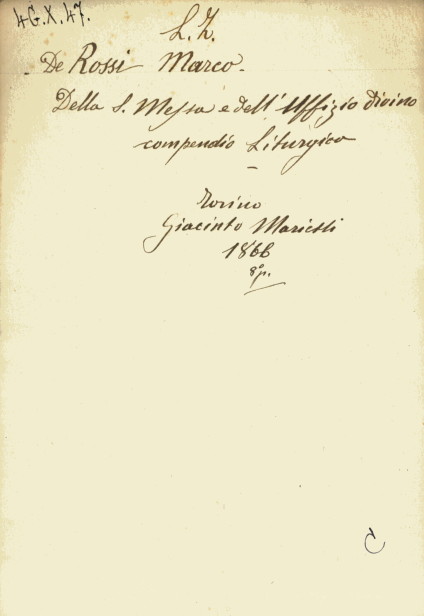 4G.X.47.
L.Z.
De Rossi Marco.
Della S. Messa e dell' Uffizio divino
compendio Liturgico
Torino
Giacinto Marietti
1866
8° p.